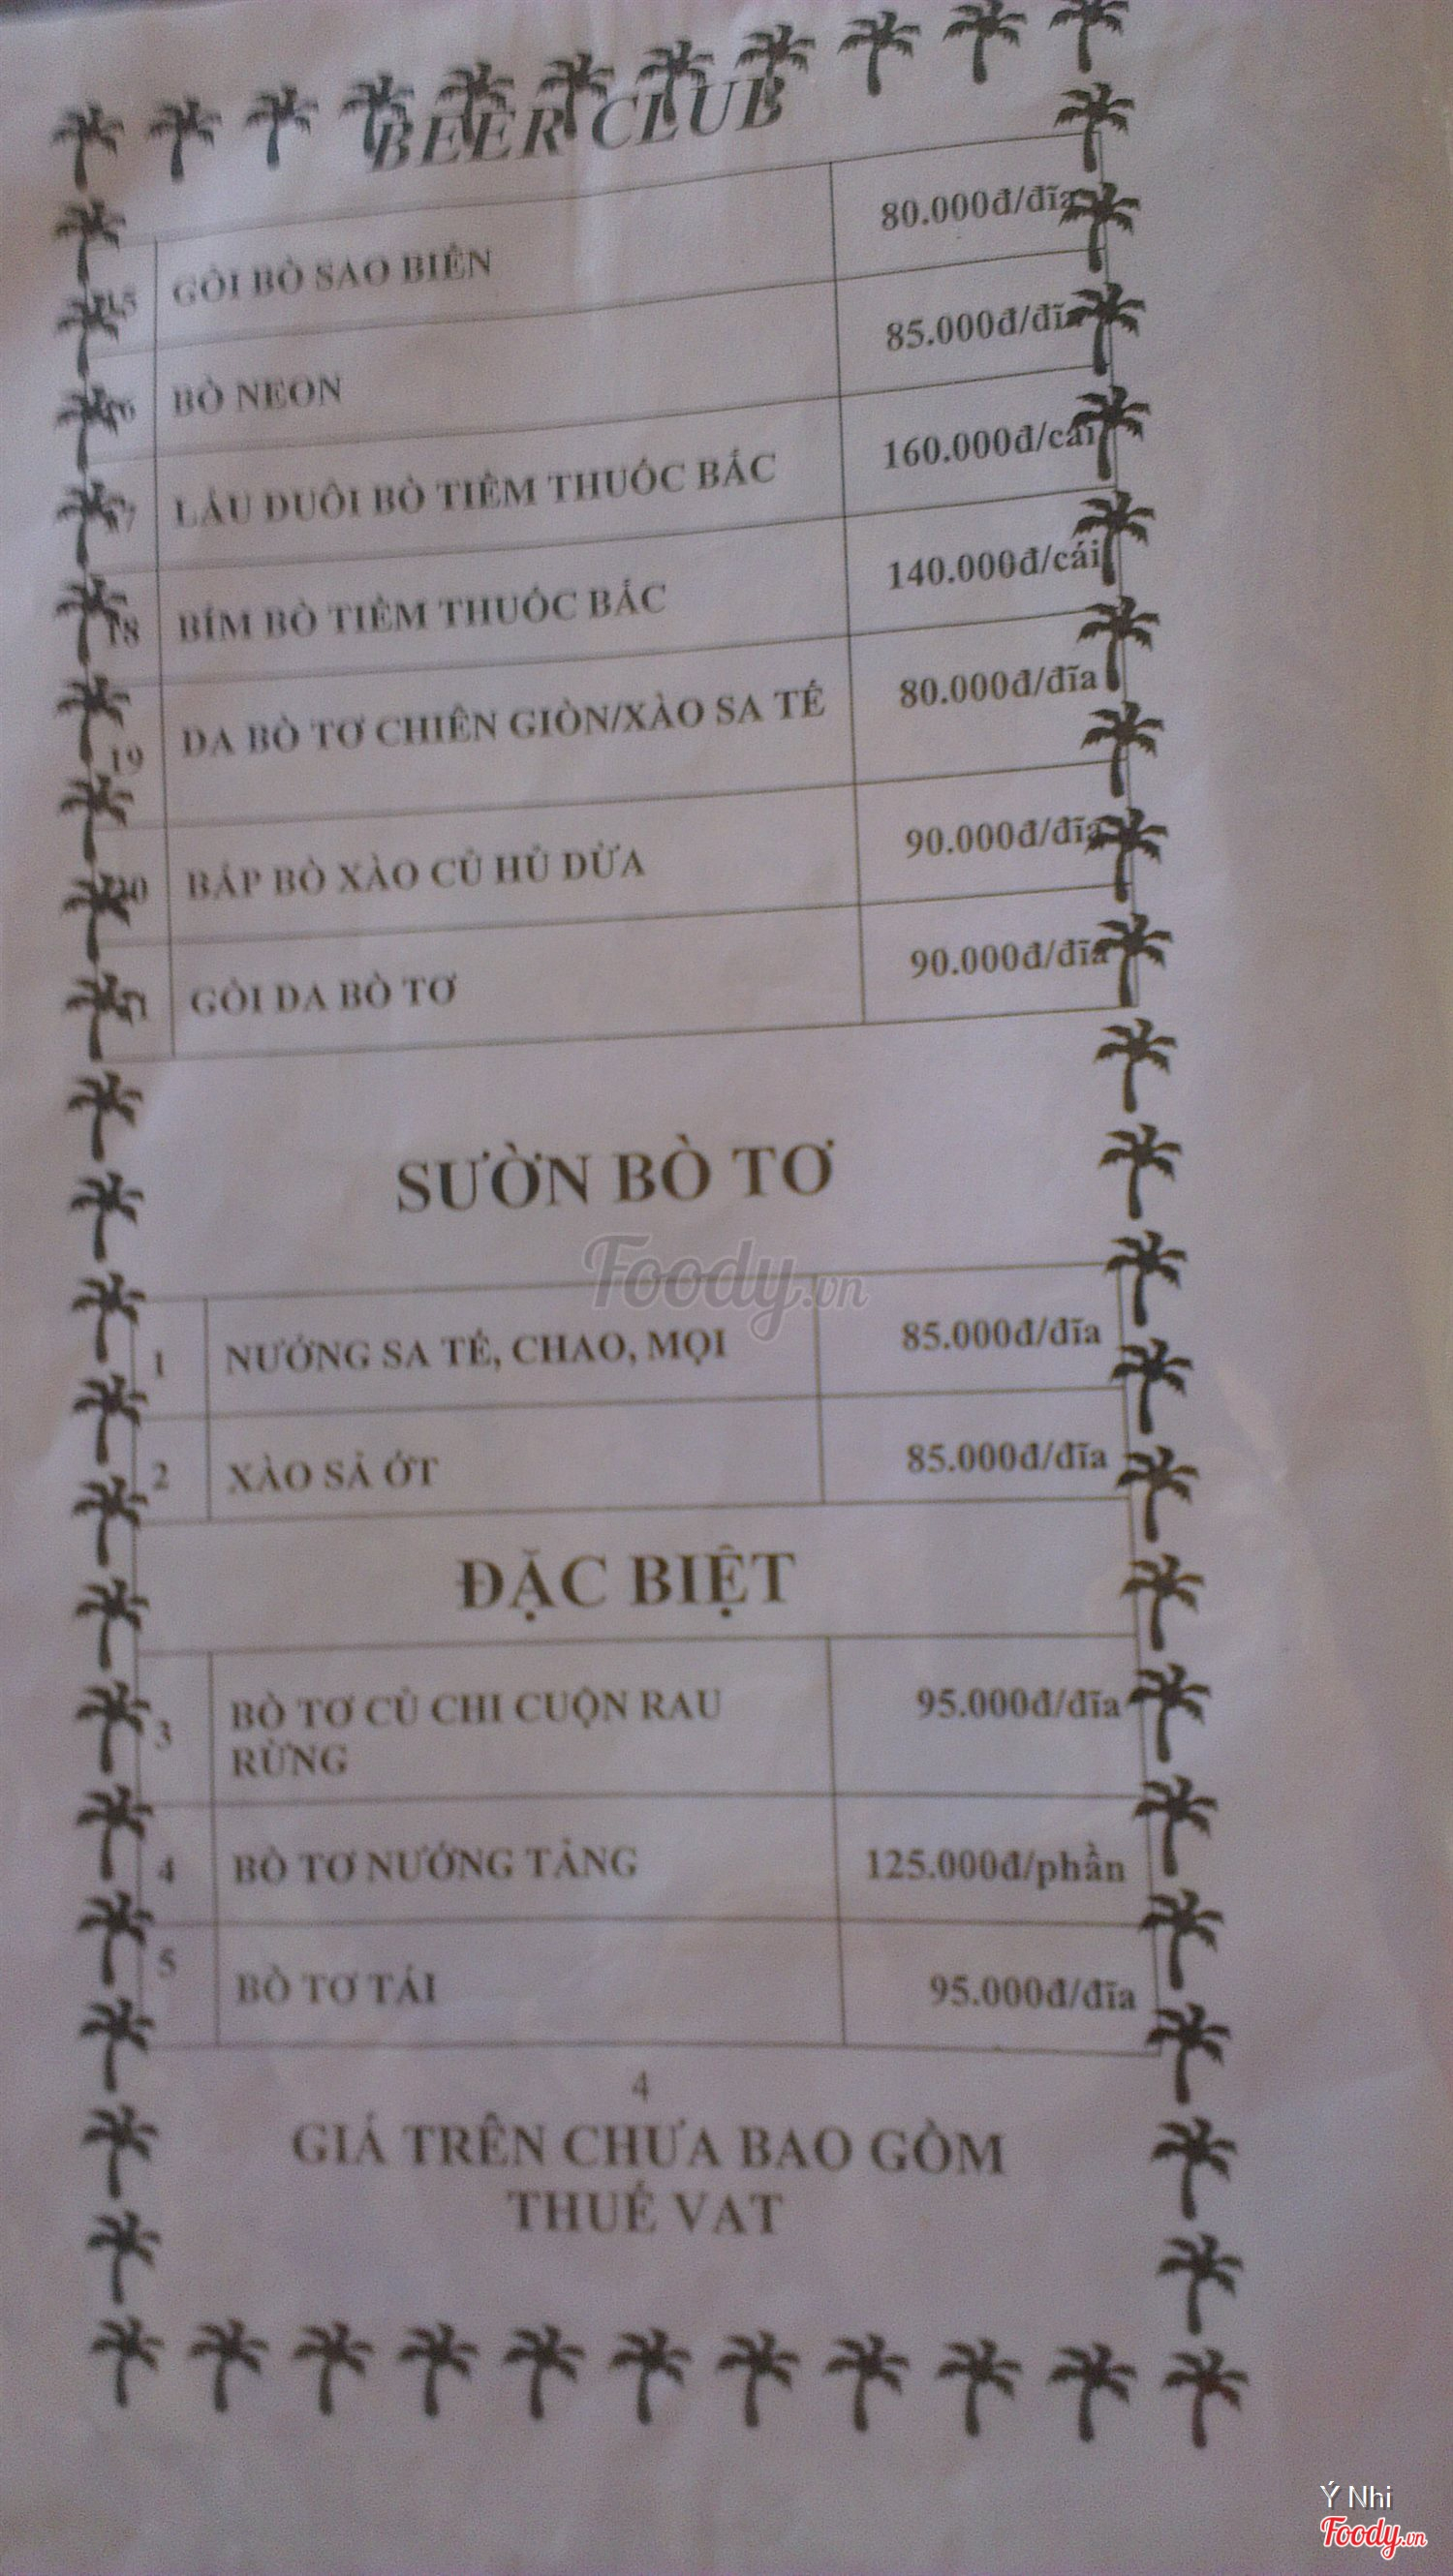 BEER CLUB
15 GỎI BÒ SAO BIỂN 80.000đ/đĩa
16 BÒ NEON 85.000đ/đĩa
17 LẨU ĐUÔI BÒ TIỀM THUỐC BẮC 160.000đ/cái
18 BÍM BÒ TIỀM THUỐC BẮC 140.000đ/cái
19 DA BÒ TƠ CHIÊN GIÒN/XÀO SA TẾ 80.000đ/đĩa
20 BẮP BÒ XÀO CỦ HỦ DỪA 90.000đ/đĩa
21 GỎI DA BÒ TƠ 90.000đ/đĩa
SƯỜN BÒ TƠ
Foody.vn
1 NƯỚNG SA TẾ, CHAO, MỌI 85.000đ/đĩa
2 XÀO SẢ ỚT 85.000đ/đĩa
ĐẶC BIỆT
3 BÒ TƠ CỦ CHI CUỘN RAU 95.000đ/đĩa
RỪNG
4 BÒ TƠ NƯỚNG TẢNG 125.000đ/phần
5 BÒ TƠ TÁI 95.000đ/đĩa
4
GIÁ TRÊN CHƯA BAO GỒM
THUẾ VAT
Ý Nhi
Foody.vn